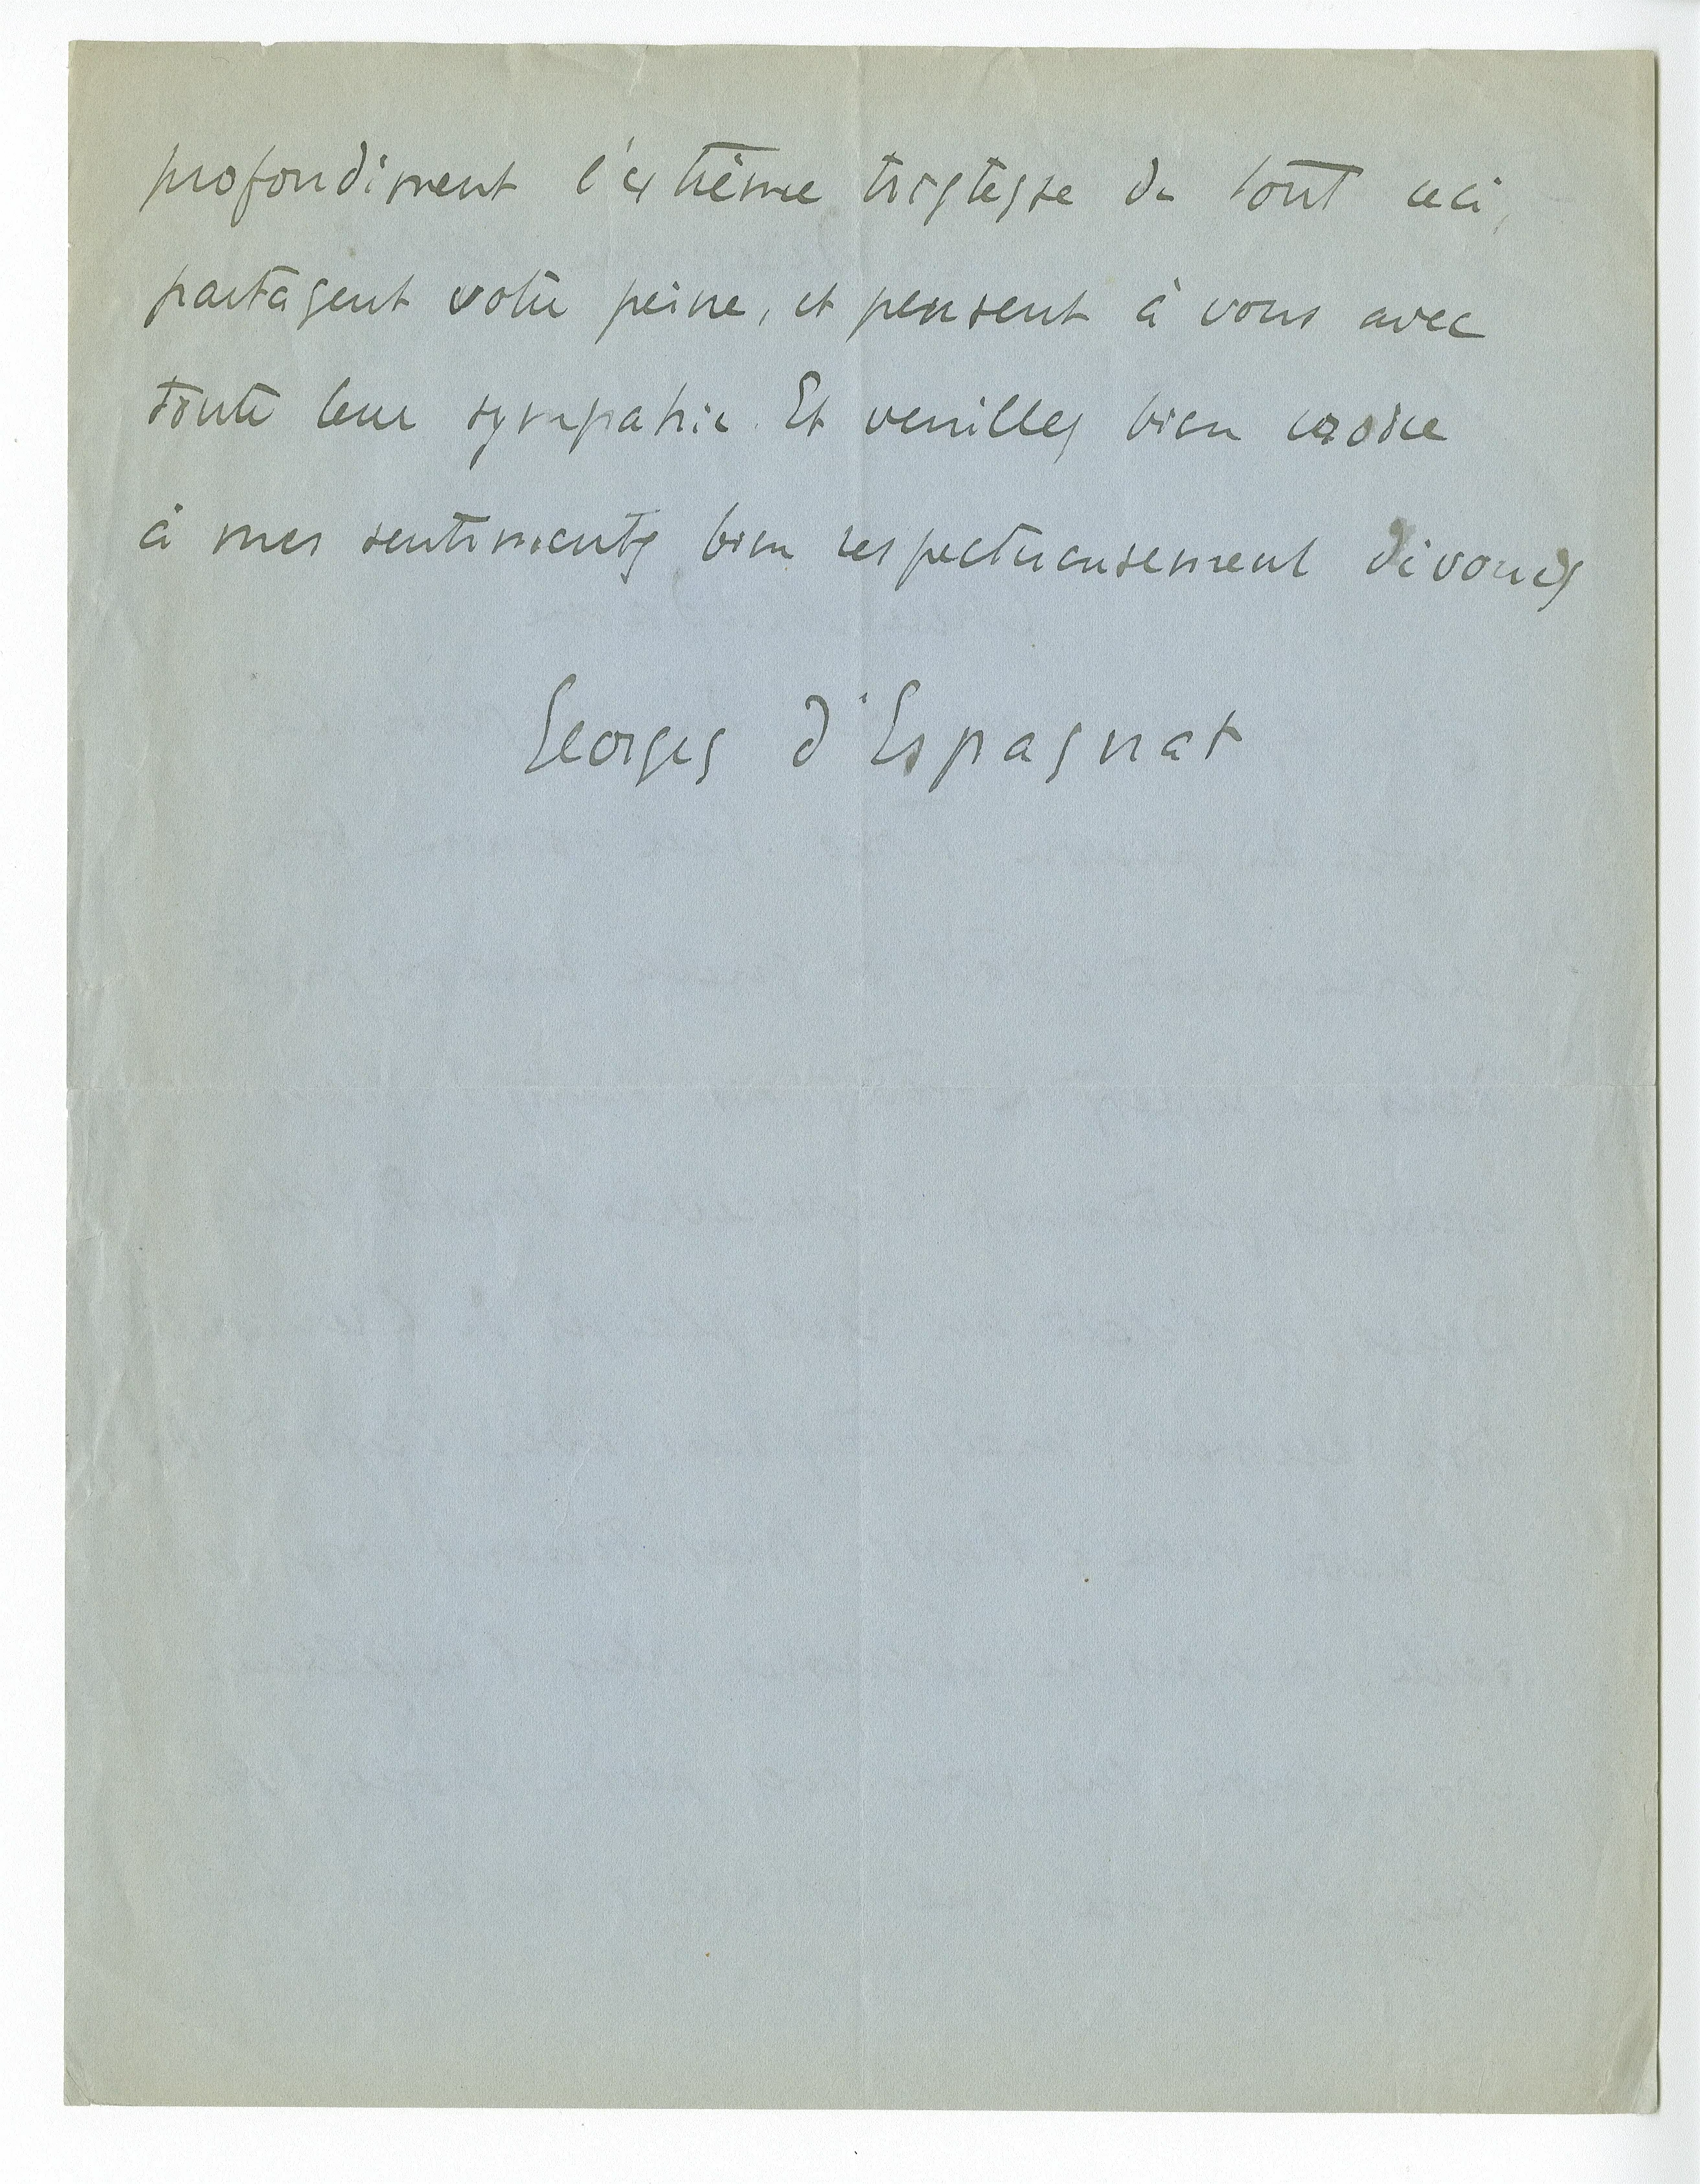 profondément l'extrême tristesse de tout ceci,
partagent votre peine, et pensent à vous avec
toute leur sympathie. Et veuillez bien croire
à mes sentiments bien respectueusement dévoués
Georges d'Espagnat